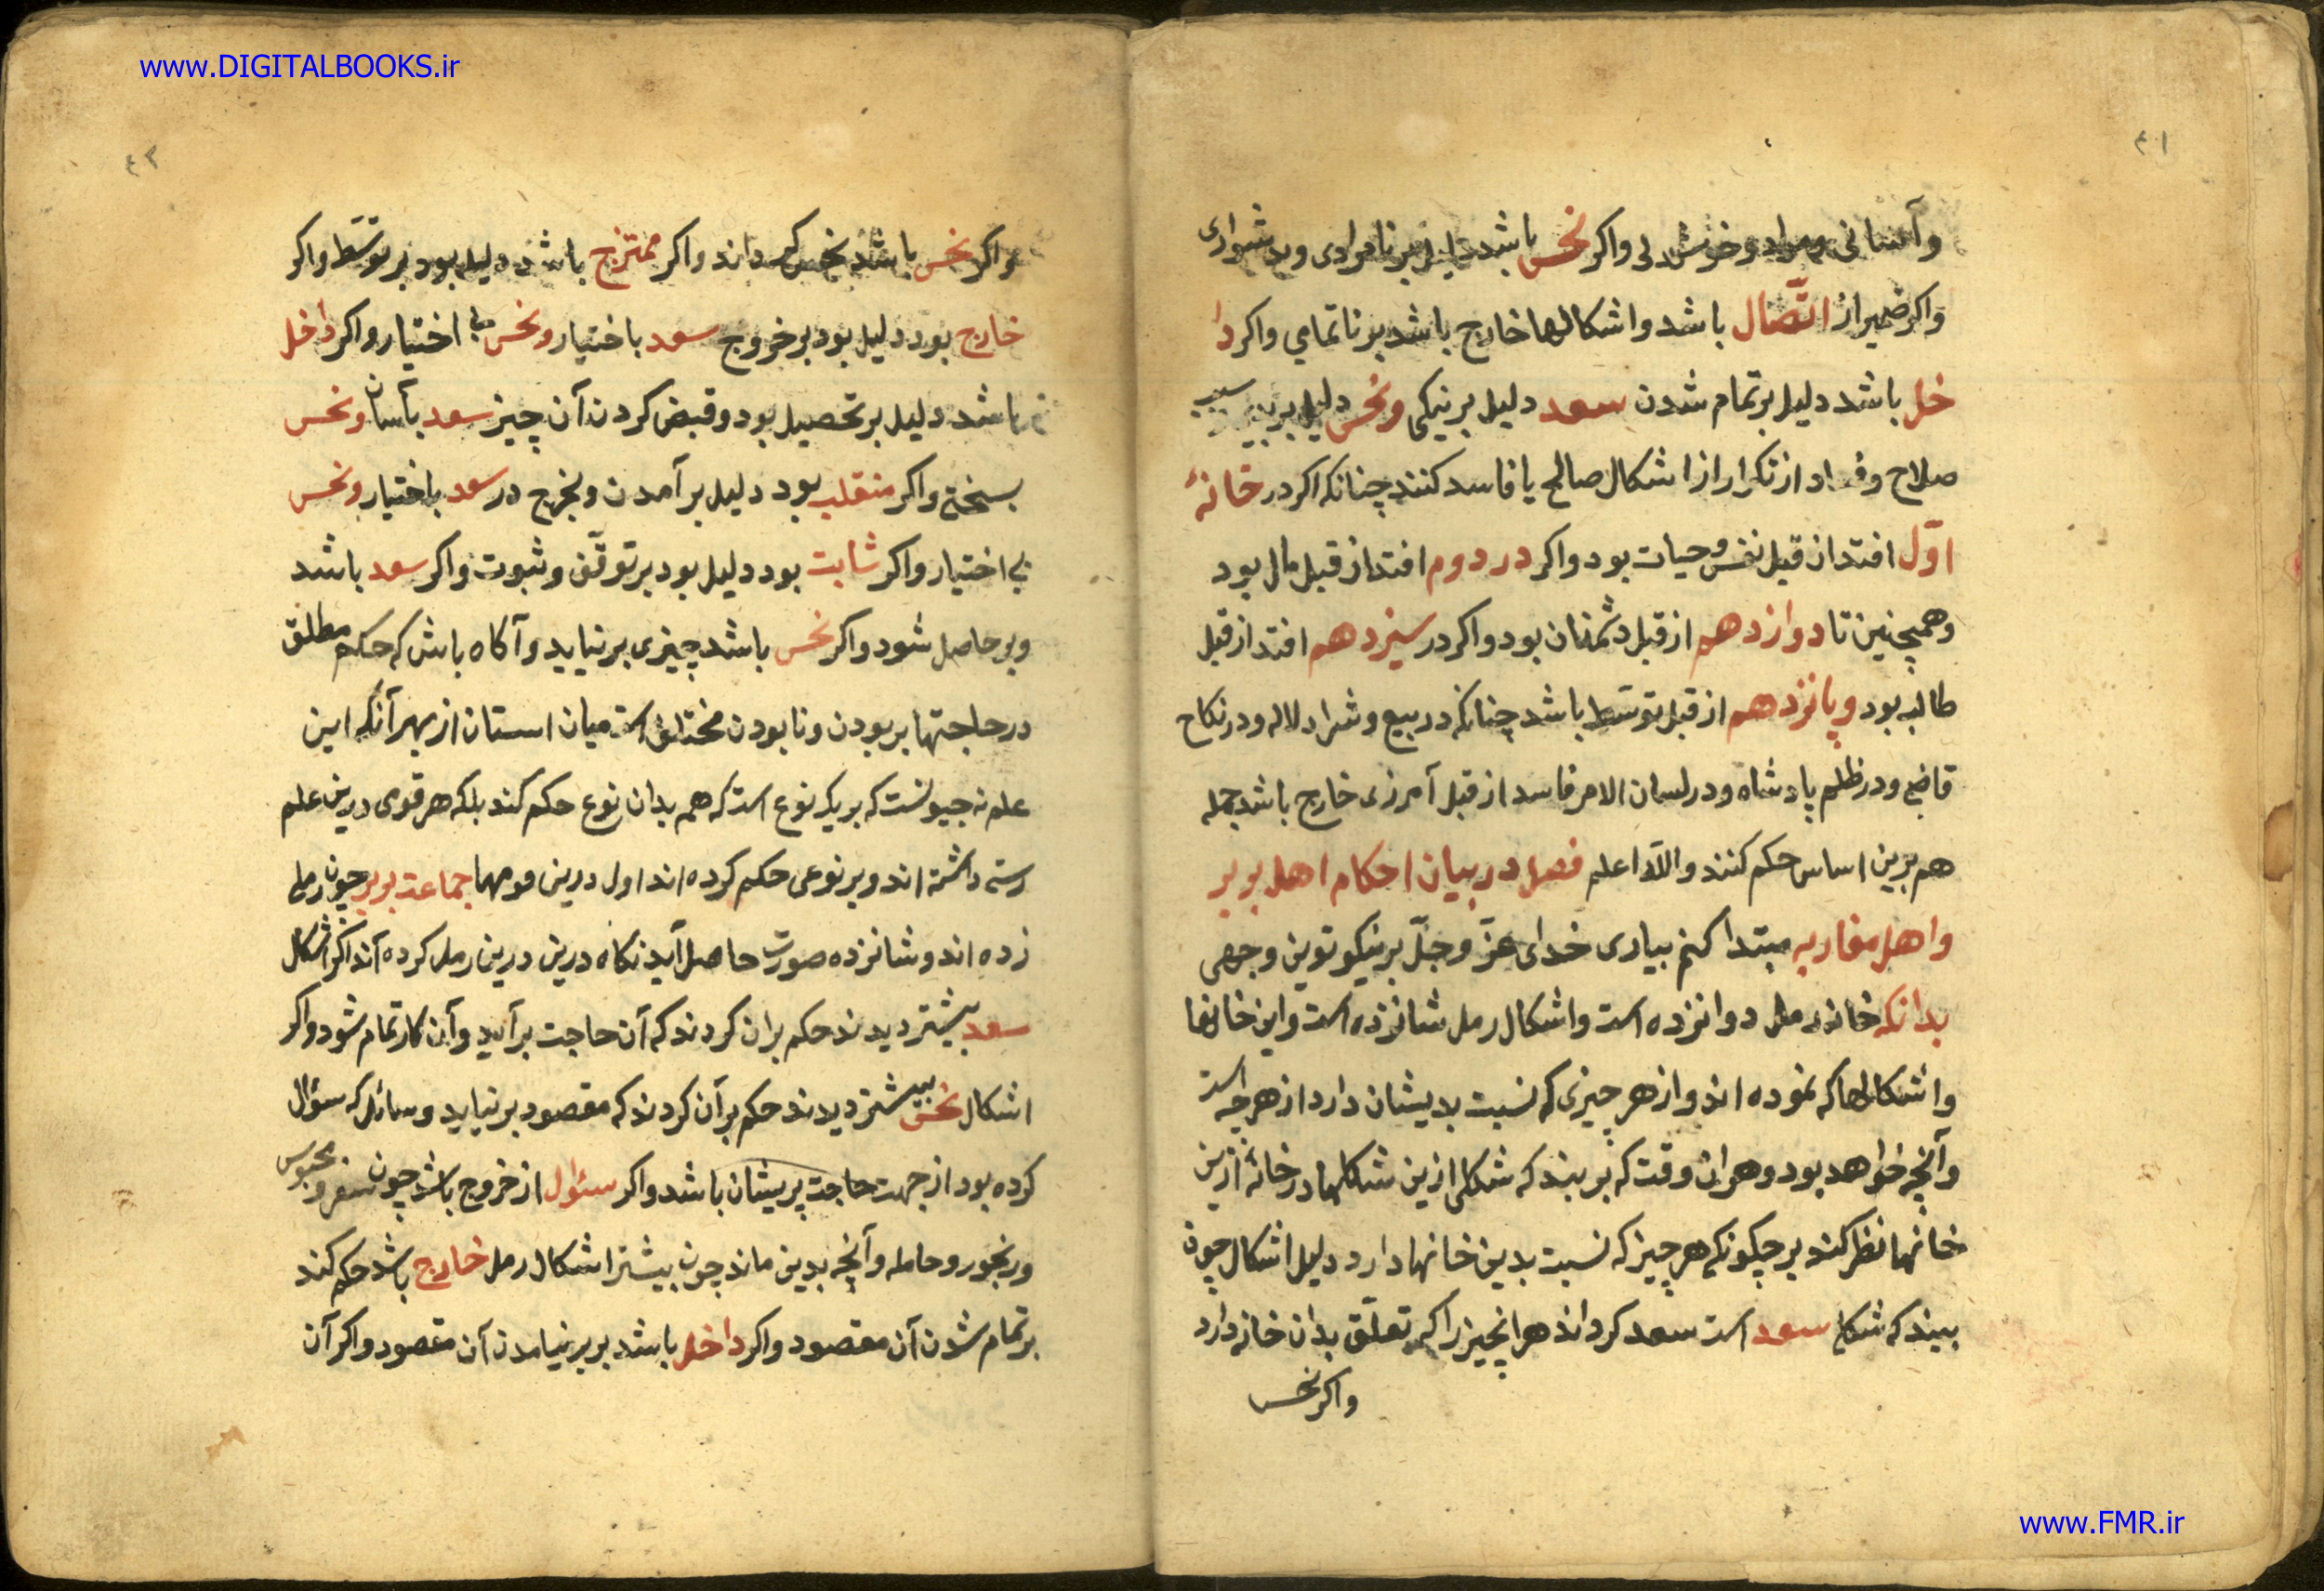 www.DIGITALBOOKS.ir
٤١
وآسانی ومراد وخوش دلی واکر نحس باشد دلیل بر نامرادی وبدشواری
واکر ضمیر از اتّصال باشد واشکالها خارج باشد بر ناتمامی واکر دا
خل باشد دلیل بر تمام شدن سعد دلیل بر نیکی ونحس دلیل بر سبب
صلاح وفساد از تکرار از اشکال صالح یا فاسد کنند چنانکه اکر در خانهٔ
اوّل افتد از قبل نفس وحیات بود واکر در دوم افتد از قبل مال بود
وهمچنین تا دوازدهم از قبل دشمنان بود واکر در سیزدهم افتد از قبل
طالب بود وپانزدهم از قبل توسّط باشد چنانکه در بیع وشرا دلاله ودر نکاح
قاضی ودر ظلم پادشاه ودر لسان الامر فاسد از قبل آمرزی خارج باشد جمله
هم برین اساس حکم کنند واللّه اعلم فصل در بیان احکام اهل بربر
واهل مغاربه مبتدا کنم بیاری خدای عزّ وجلّ بر نیکوتوین وجهی
بدانکه خانهٔ رمل دوانزده است واشکال رمل شانزده است واین خانها
واشکالها که نموده اند واز هر چیزی که نسبت بدیشان دارد از هر چه است
وآنچه خواهد بود وهر ان وقت که بر بیند که شکلی ازین شکلها در خانهٔ ازین
خانها نظر کند بر چکونکی هر چیز که نسبت بدین خانها دارد دلیل اشکال چون
بیند که شکل سعد است سعد کرداند هر انچیز را که تعلّق بدان خانه دارد
واکر نحس
٤٢
واکر نحس باشد نحس کرداند واکر ممتزج باشد دلیل بود بر توسّط واکر
خارج بود دلیل بود بر خروج سعد باختیار ونحس بی اختیار واکر داخل
باشد دلیل بر تحصیل بود وقبض کردن آن چیز سعد بآسان ونحس
بسختی واکر منقلب بود دلیل بر آمدن وبخرج در سعد باختیار ونحس
بی اختیار واکر ثابت بود دلیل بود بر توقّف وثبوت واکر سعد باشد
وبر حاصل شود واکر نحس باشد چیزی بر نیاید وآکاه باش که حکم مطلق
در حاجتها بر بودن ونابودن مختلف است میان استان از بهر آنکه این
علم نه جیونست که بر یک نوع است که هم بدان نوع حکم کند بلکه هر قومی درین علم
رسته داشته اند وبر نوعی حکم کرده اند اول درین مومها جماعت بربر چون رملی
زده اند وشانزده صورت حاصل آید نکاه درین درین رمل کرده آند اکر اشکال
سعد بیشتر دیدند حکم بران کردند که آن حاجت برآید وآن کار تمام شود واکر
اشکال نحس بیشتر دیدند حکم برآن کردند که مقصود بر نیاید وسائل که سئوال
کرده بود از جهت حاجت پریشان باشد واکر سئوال از خروج باشد چون سفر ومحبوس
ورنجور وحامله وآنچه بدین ماند چون بیشتر اشکال رمل خارج باشد حکم کند
بر تمام شدن آن مقصود واکر داخل باشد بر برنیامدن آن مقصود واکر آن
www.FMR.ir